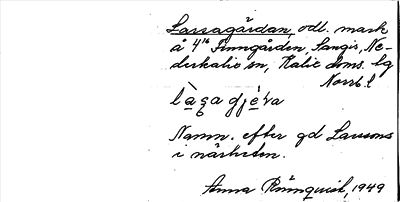 Lassagården, odl. mark
å 4:16 Finngården, Sangis, Ne-
derkalix sn, Kalix dms. lg
Norrb. l
Namn. efter gd Larsons
i närheten.
Anna Rönnquist, 1949